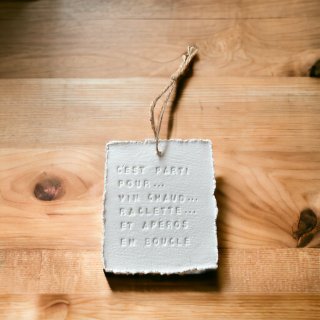 C'EST PARTI
POUR...
VIN CHAUD...
RACLETTE...
ET APEROS
EN BOUCLE